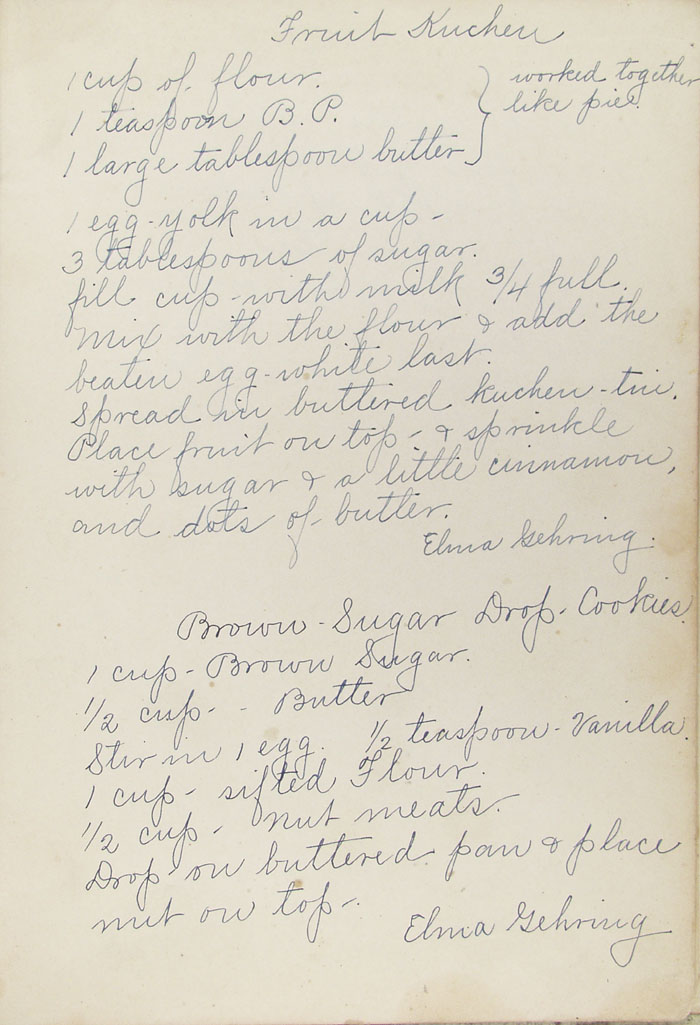 Fruit Kuchen
1 cup of flour.
1 teaspoon B.P.
1 large tablespoon butter
} worked together
like pie.
1 egg-yolk in a cup-
3 tablespoons of sugar.
fill cup-with milk 3/4 full.
Mix with the flour & add the
beaten egg-white last.
Spread in buttered kuchen-tin.
Place fruit on top- & sprinkle
with sugar & a little cinnamon,
and dots of butter.
Elma Gehring.
Brown-Sugar Drop-Cookies.
1 cup-Brown Sugar.
1/2 cup- - Butter
Stir in 1 egg. 1/2 teaspoon-Vanilla.
1 cup- sifted Flour.
1/2 cup- nut meats.
Drop on buttered pan & place
nut on top-.
Elma Gehring